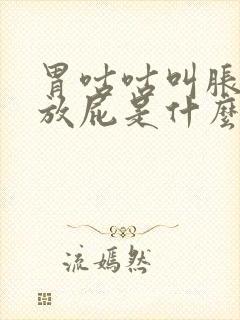 胃咕咕叫脹
放屁是什麼
流嫣然